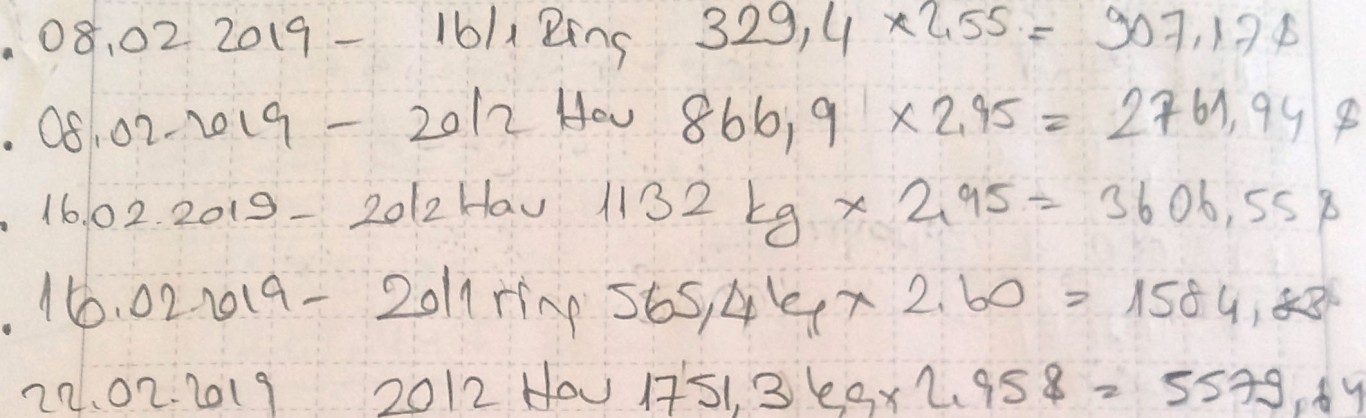 . 08.02 2019 – 16/1 Ring 329,4 × 2,55 = 907,17 $
. 08.02.2019 – 20/2 Hav 866,9 × 2,95 = 2761,94 $
. 16.02.2019 – 20/2 Hav 1132 kg × 2,95 = 3606,55 $
. 16.02.2019 – 20/1 ring 565,4 kg × 2.60 = 1584,
22.02.2019 20/2 Hav 1751,3 kg × 2.95 $ = 5579,